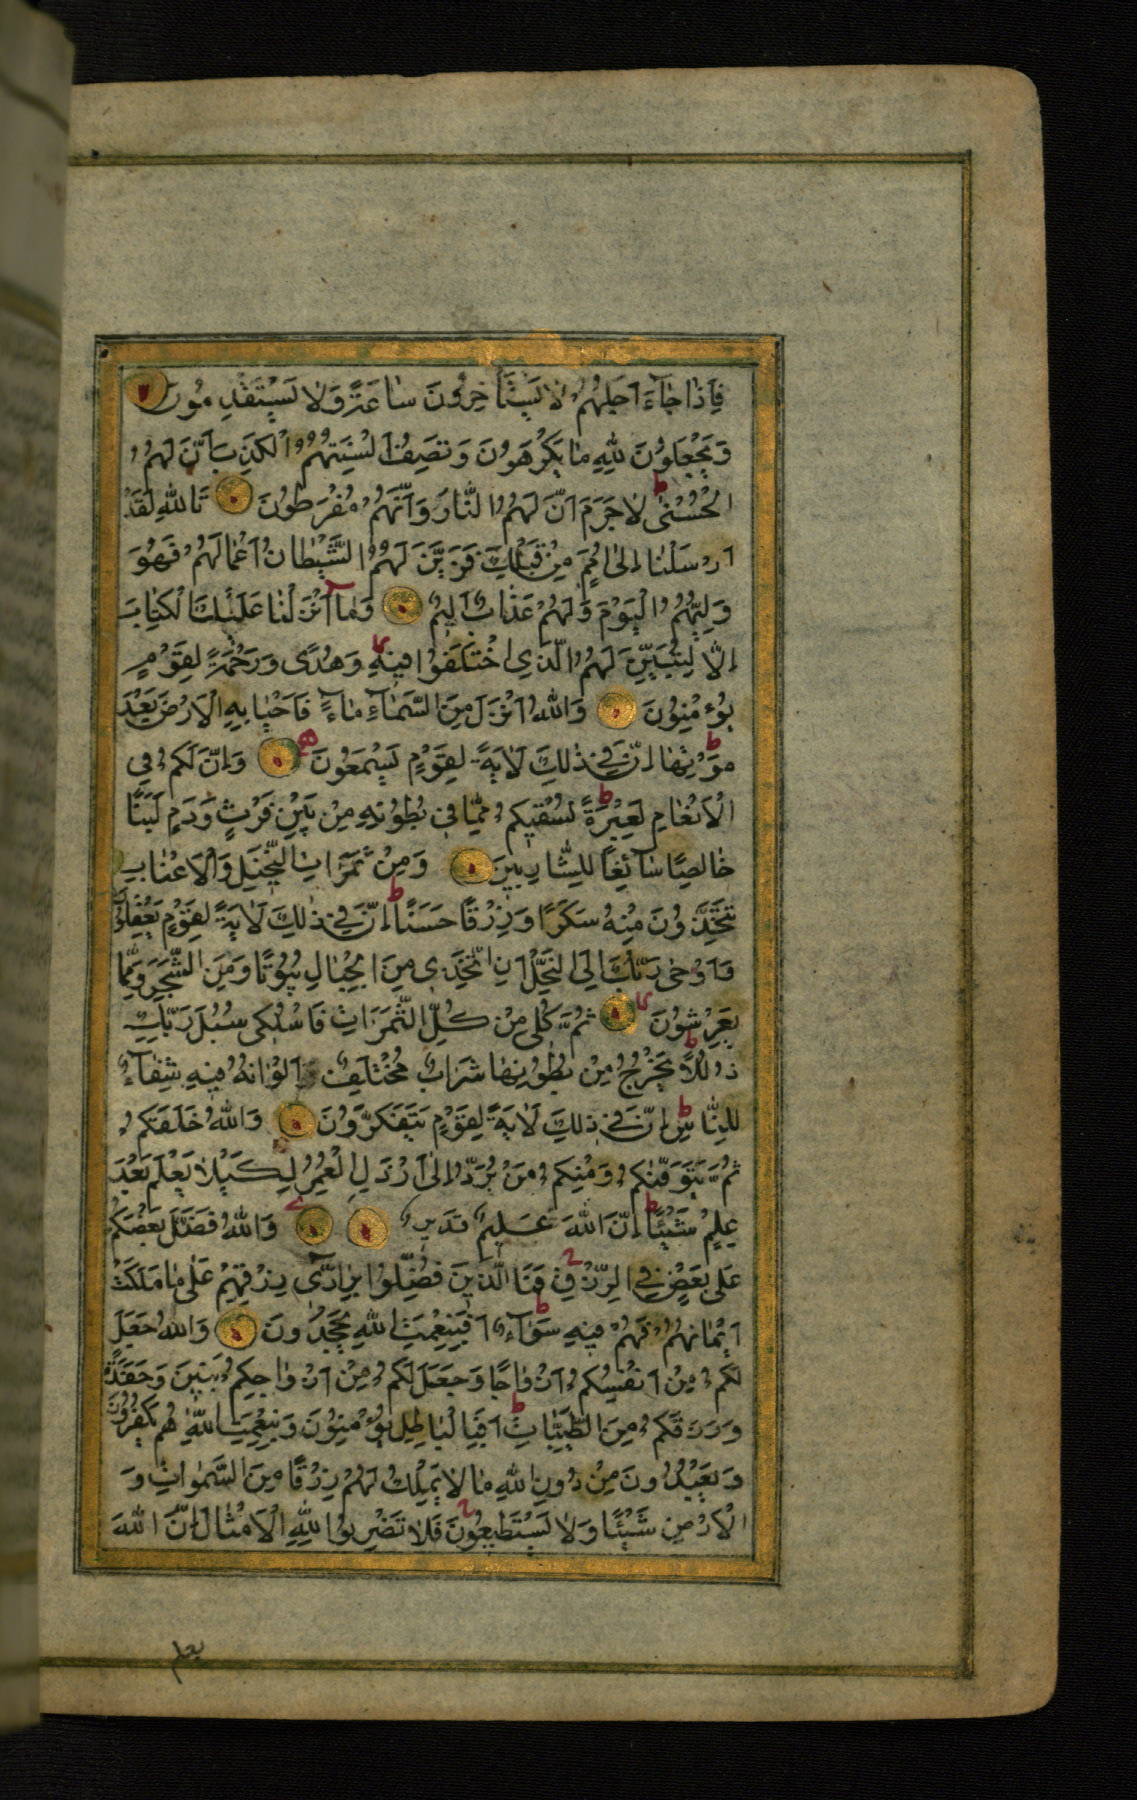 فَاِذَا جَآءَ اَجَلُهُمْ لَا يَسْتَأْخِرُونَ سَاعَةً وَلَا يَسْتَقْدِمُونَ
وَيَجْعَلُونَ لِلّٰهِ مَا يَكْرَهُونَ وَتَصِفُ اَلْسِنَتُهُمُ الْكَذِبَ اَنَّ لَهُمُ
الْحُسْنٰى ط لَا جَرَمَ اَنَّ لَهُمُ النَّارَ وَاَنَّهُمْ مُفْرَطُونَ تَاللّٰهِ لَقَدْ
اَرْسَلْنَا اِلٰى اُمَمٍ مِنْ قَبْلِكَ فَزَيَّنَ لَهُمُ الشَّيْطَانُ اَعْمَالَهُمْ فَهُوَ
وَلِيُّهُمُ الْيَوْمَ وَلَهُمْ عَذَابٌ اَلِيمٌ وَمَآ اَنْزَلْنَا عَلَيْكَ الْكِتَابَ
اِلَّا لِتُبَيِّنَ لَهُمُ الَّذِي اخْتَلَفُوا فِيهِ لا وَهُدًى وَرَحْمَةً لِقَوْمٍ
يُؤْمِنُونَ وَاللّٰهُ اَنْزَلَ مِنَ السَّمَآءِ مَآءً فَاَحْيَا بِهِ الْاَرْضَ بَعْدَ
مَوْتِهَا ط اِنَّ فِي ذٰلِكَ لَاٰيَةً لِقَوْمٍ يَسْمَعُونَ وَاِنَّ لَكُمْ فِي
الْاَنْعَامِ لَعِبْرَةً ط نُسْقِيكُمْ مِمَّا فِي بُطُونِهِ مِنْ بَيْنِ فَرْثٍ وَدَمٍ لَبَنًا
خَالِصًا سَآئِغًا لِلشَّارِبِينَ وَمِنْ ثَمَرَاتِ النَّخِيلِ وَالْاَعْنَابِ
تَتَّخِذُونَ مِنْهُ سَكَرًا وَرِزْقًا حَسَنًا ط اِنَّ فِي ذٰلِكَ لَاٰيَةً لِقَوْمٍ يَعْقِلُونَ
وَاَوْحٰى رَبُّكَ اِلَى النَّحْلِ اَنِ اتَّخِذِي مِنَ الْجِبَالِ بُيُوتًا وَمِنَ الشَّجَرِ وَمِمَّا
يَعْرِشُونَ لا ثُمَّ كُلِي مِنْ كُلِّ الثَّمَرَاتِ فَاسْلُكِي سُبُلَ رَبِّكِ
ذُلُلًا ط يَخْرُجُ مِنْ بُطُونِهَا شَرَابٌ مُخْتَلِفٌ اَلْوَانُهُ فِيهِ شِفَآءٌ
لِلنَّاسِ ط اِنَّ فِي ذٰلِكَ لَاٰيَةً لِقَوْمٍ يَتَفَكَّرُونَ وَاللّٰهُ خَلَقَكُمْ
ثُمَّ يَتَوَفّٰيكُمْ وَمِنْكُمْ مَنْ يُرَدُّ اِلٰى اَرْذَلِ الْعُمُرِ لِكَيْلَا يَعْلَمَ بَعْدَ
عِلْمٍ شَيْئًا ط اِنَّ اللّٰهَ عَلِيمٌ قَدِيرٌ وَاللّٰهُ فَضَّلَ بَعْضَكُمْ
عَلٰى بَعْضٍ فِي الرِّزْقِ ج فَمَا الَّذِينَ فُضِّلُوا بِرَآدِّي رِزْقِهِمْ عَلٰى مَا مَلَكَتْ
اَيْمَانُهُمْ فَهُمْ فِيهِ سَوَآءٌ ط اَفَبِنِعْمَتِ اللّٰهِ يَجْحَدُونَ وَاللّٰهُ جَعَلَ
لَكُمْ مِنْ اَنْفُسِكُمْ اَزْوَاجًا وَجَعَلَ لَكُمْ مِنْ اَزْوَاجِكُمْ بَنِينَ وَحَفَدَةً
وَرَزَقَكُمْ مِنَ الطَّيِّبَاتِ ط اَفَبِالْبَاطِلِ يُؤْمِنُونَ وَبِنِعْمَتِ اللّٰهِ هُمْ يَكْفُرُونَ
وَيَعْبُدُونَ مِنْ دُونِ اللّٰهِ مَا لَا يَمْلِكُ لَهُمْ رِزْقًا مِنَ السَّمٰوَاتِ وَ
الْاَرْضِ شَيْئًا وَلَا يَسْتَطِيعُونَ ج فَلَا تَضْرِبُوا لِلّٰهِ الْاَمْثَالَ اِنَّ اللّٰهَ
يعلم